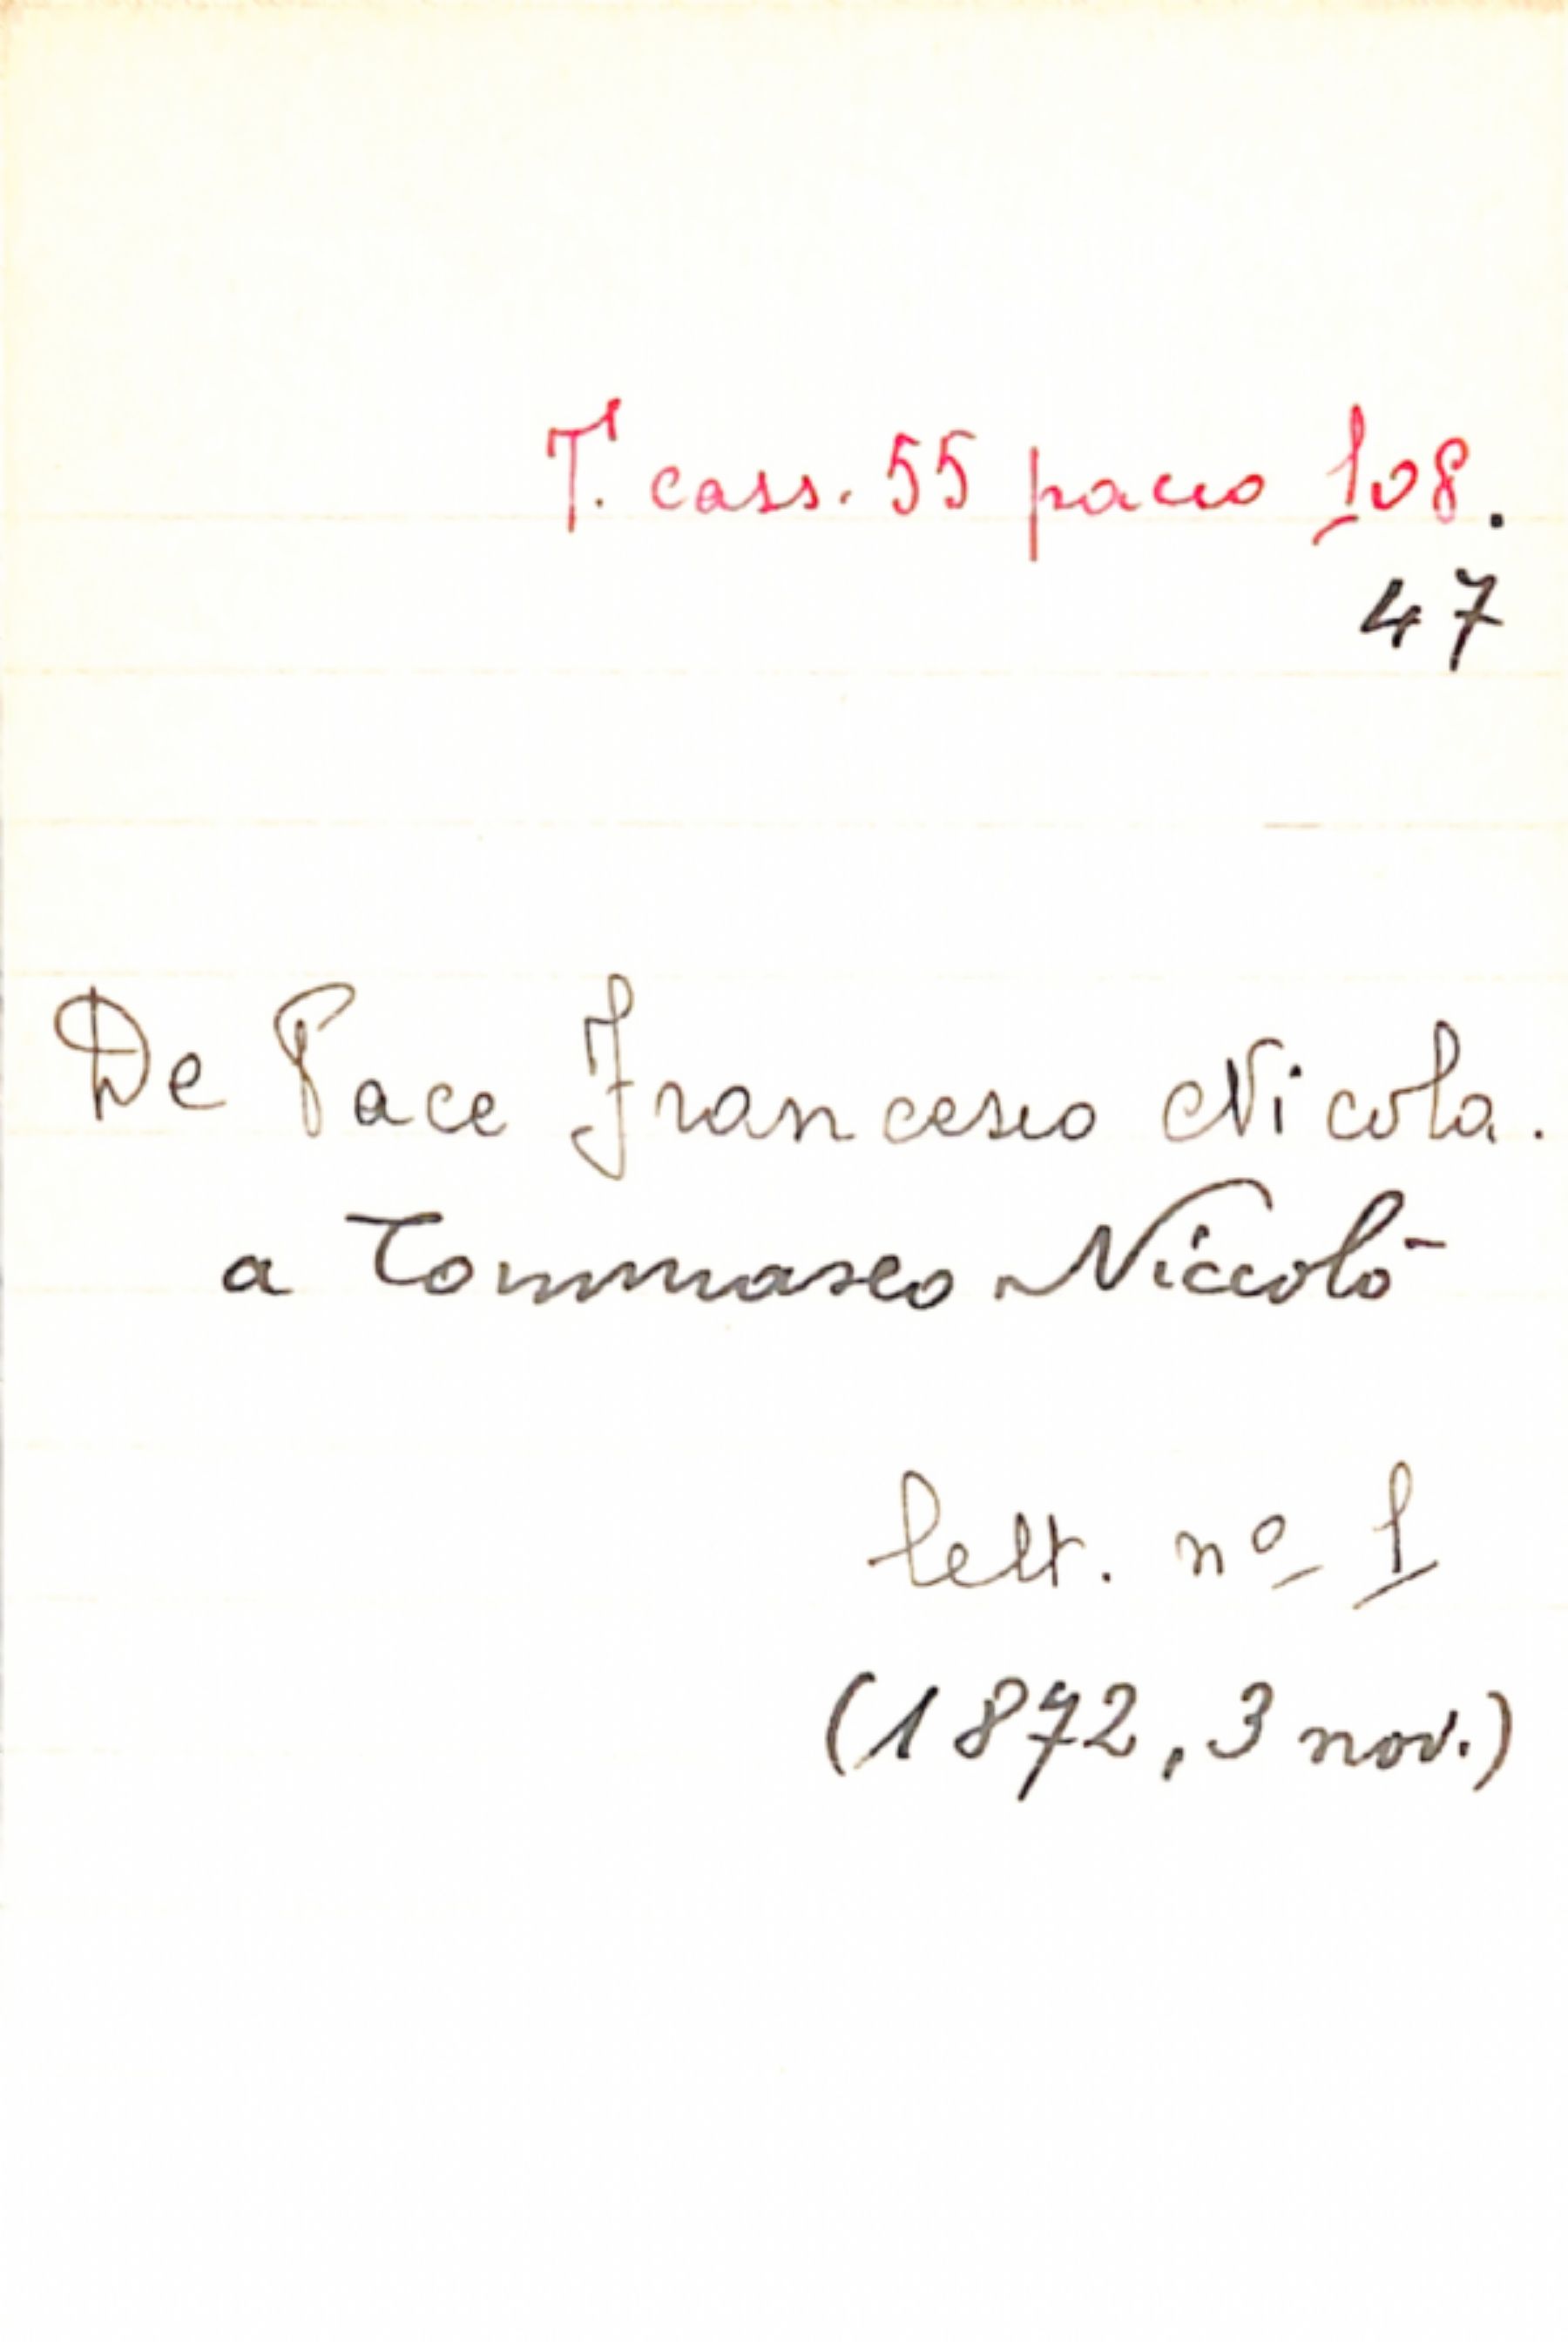 T. cass. 55 pacco 108.
47
De Pace Francesco Nicola.
a Tommaseo Niccolò
lett. nº 1
(1872, 3 nov.)